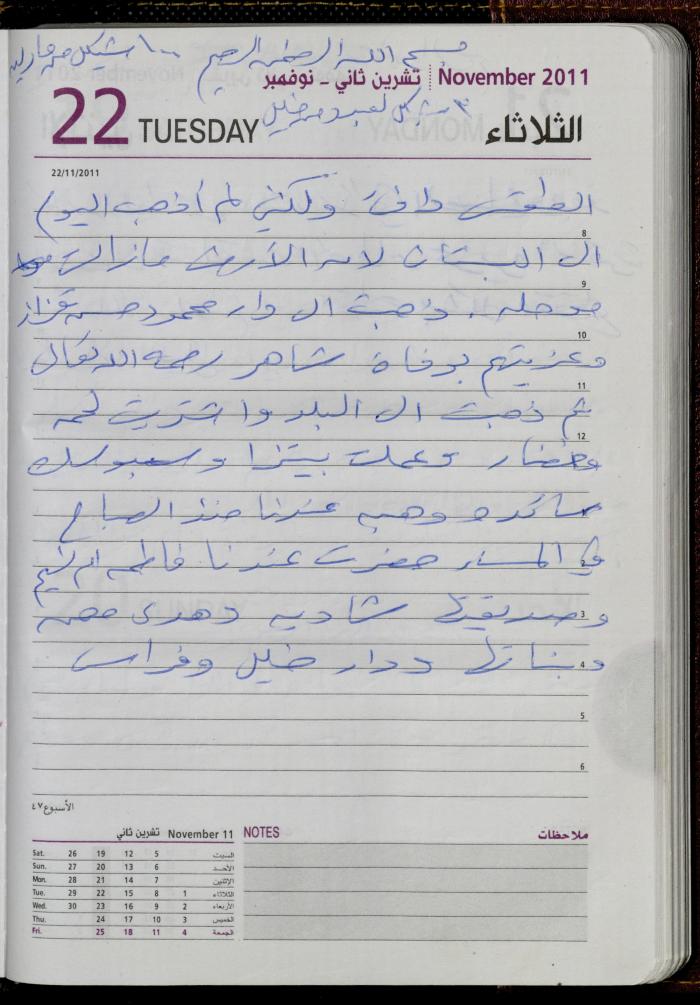 بسم الله الرحمن الرحيم ١٠٠ شيكل من
November 2011 تشرين ثاني - نوفمبر
٣ شيكل لعبد من خليل
22 TUESDAY الثلاثاء
22/11/2011
الطقس دافئ ولكني لم أذهب اليوم
8
الى البستان لان الأرض مازالت
9
موحله . ذهبت الى دار محمود حسن قزاز
10
وعزيتهم بوفاة شاهر رحمه الله تعالى
11
ثم ذهبت الى البلد واشتريت لحمه
12
وخضار وعملت بيتزا وسمبوسك
ساكده وهبه عندنا منذ الصباح
في المساء حضرت عندنا فاطمه ام الشيخ
2
وصديقتها شاديه وهدى
3
وبناتها ودار خليل وفراس
4
5
6
الأسبوع ٤٧
November 11 تشرين ثاني
Sat. 26 19 12 5 السبت
Sun. 27 20 13 6 الأحد
Mon. 28 21 14 7 الإثنين
Tue. 29 22 15 8 1 الثلاثاء
Wed. 30 23 16 9 2 الأربعاء
Thu. 24 17 10 3 الخميس
Fri. 25 18 11 4 الجمعة
NOTES ملاحظات